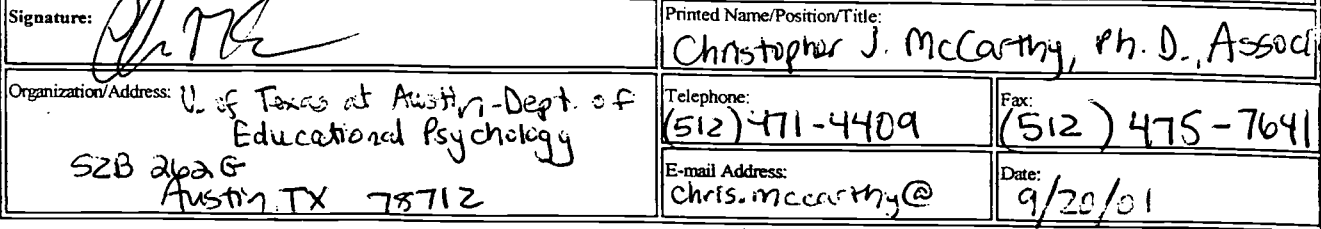 Signature:
Printed Name/Position/Title:
Christopher J. McCarthy, Ph. D., Associ
Organization/Address: U. of Texas at Austin-Dept. of
Educational Psychology
SZB 262G
Austin, TX 78712
Telephone:
(512) 471-4409
Fax:
(512) 475-7641
E-mail Address:
chris.mccarthy@
Date:
9/20/01